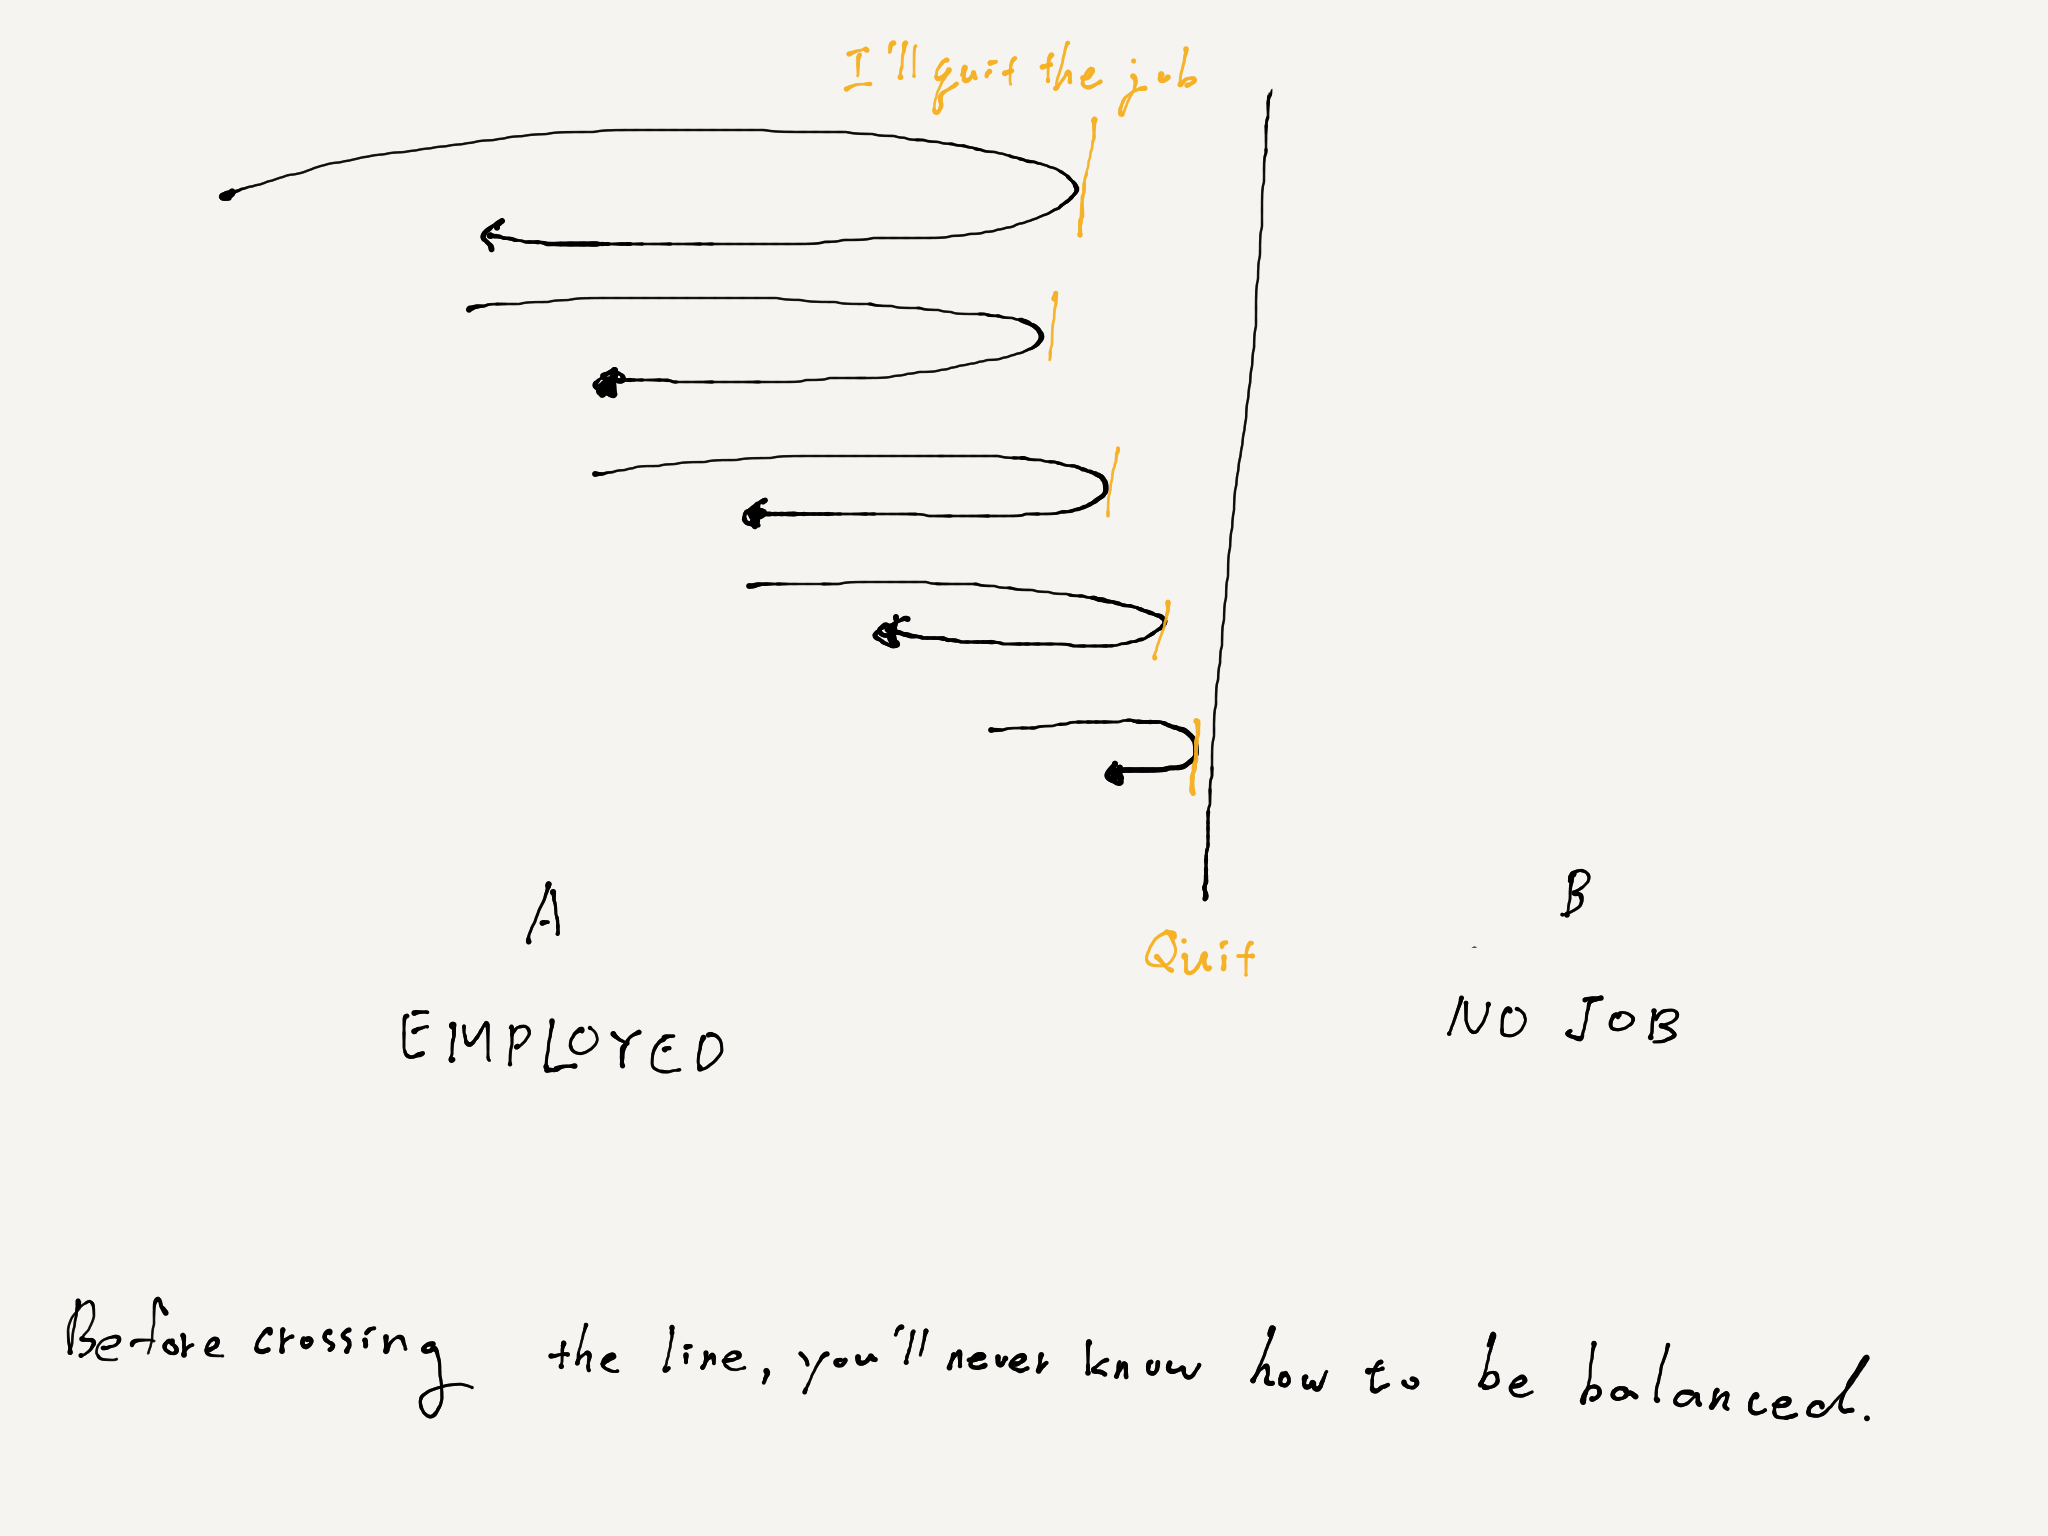 I'll quit the job
A
B
Quit
EMPLOYED
NO JOB
Before crossing the line, you'll never know how to be balanced.